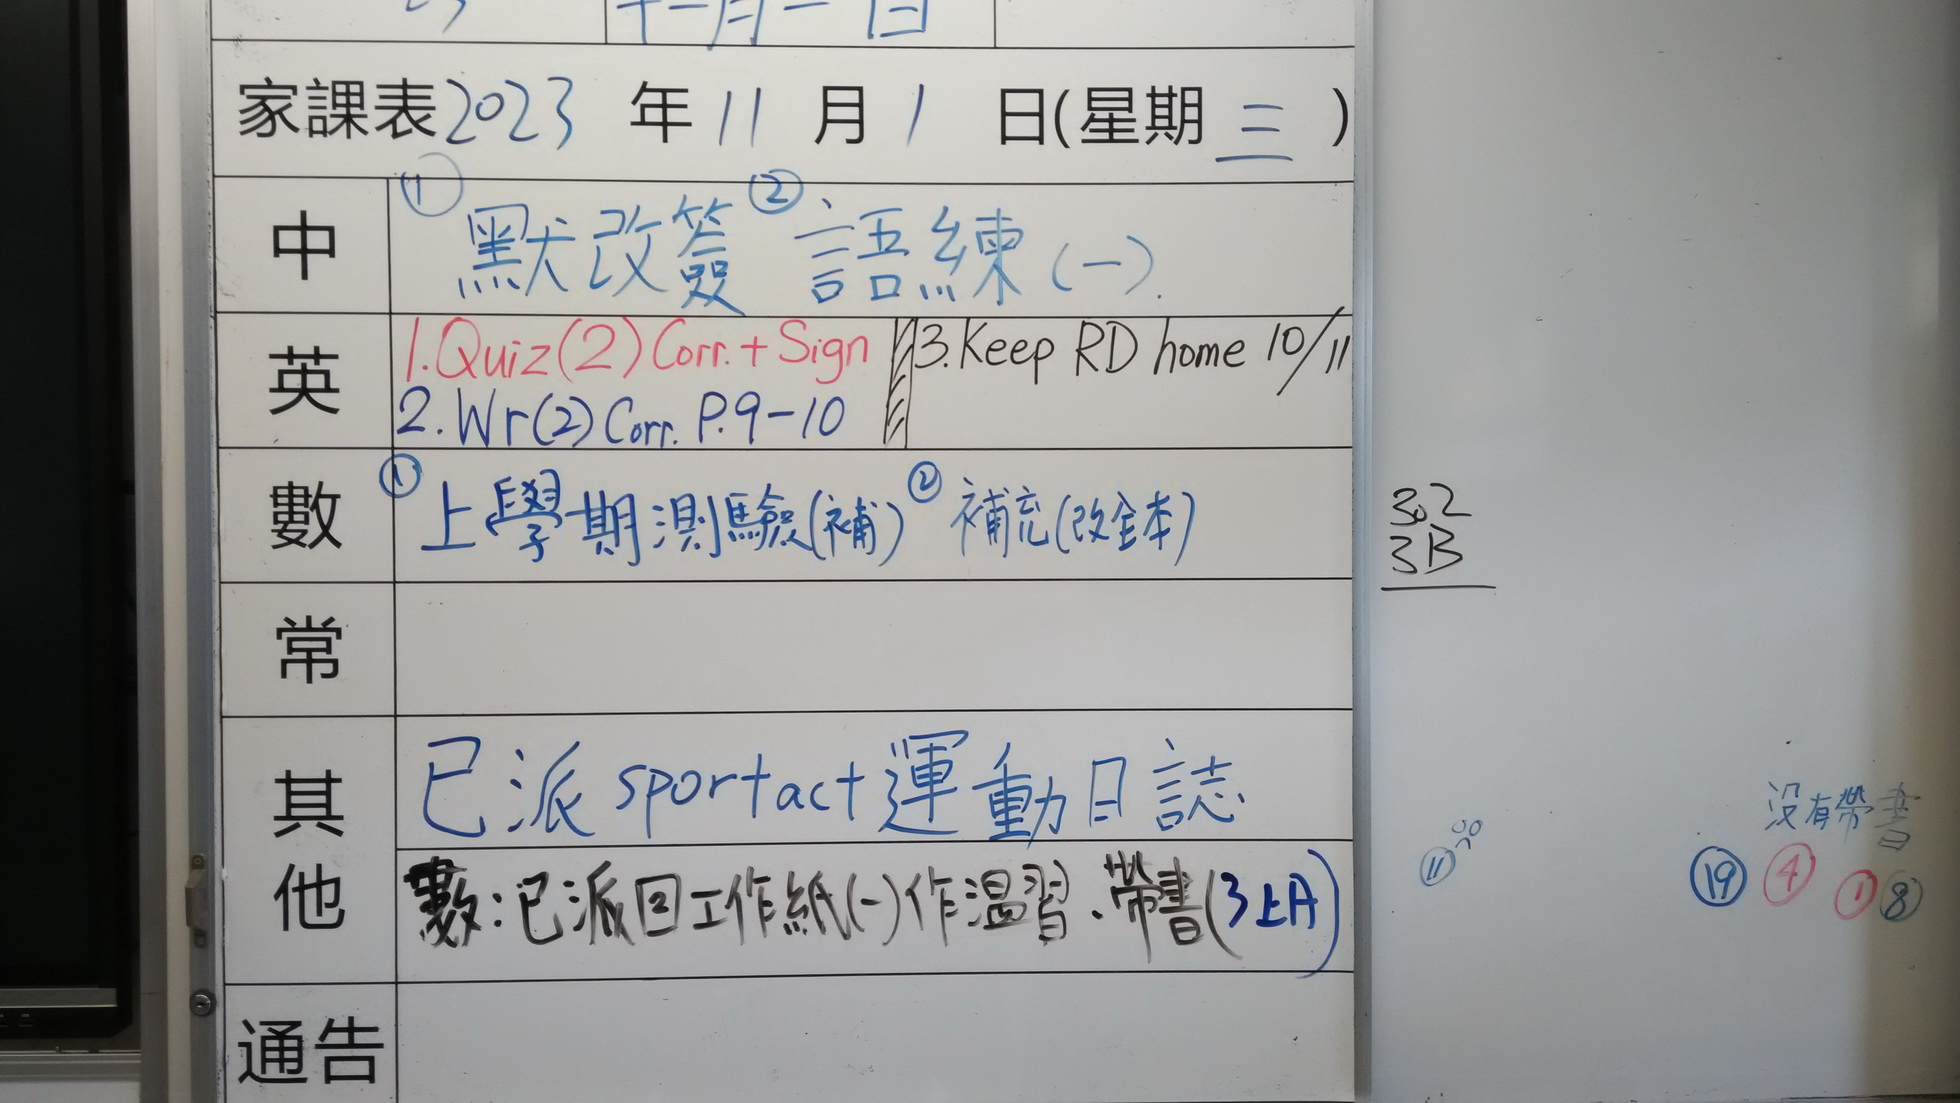 十一月一日
家課表2023 年 11 月 1 日(星期 三 )
中
① 默改簽 ② 語練(一).
英
1.Quiz(2)Corr.+Sign
2.Wr(2)Corr. P.9-10
3.Keep RD home 10/11
數
① 上學期測驗(補) ② 補充(改全本)
常
其他
已派sportact運動日誌
數:已派回工作紙(一)作溫習.帶書(3上A)
通告
302
3B
⑪
没有帶書
⑲ ④ ① ⑧